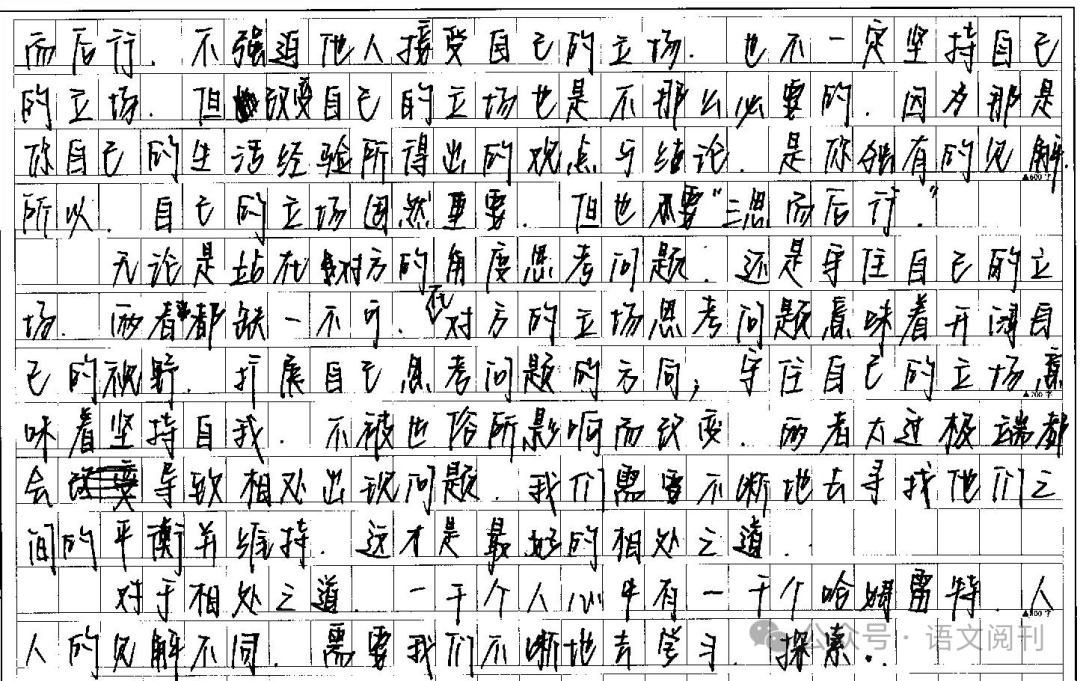 而后行. 不强迫他人接受自己的立场. 也不一定坚持自己
的立场. 但改变自己的立场也是不那么必要的. 因为那是
你自己的生活经验所得出的观点与结论. 是你独有的见解.
▲600字
所以. 自己的立场固然重要. 但也要“三思而后行.”
无论是站在对方的角度思考问题. 还是守住自己的立
场. 两者都缺一不可. 在对方的立场思考问题意味着开阔自
己的视野. 扩展自己思考问题的方向; 守住自己的立场, 意
▲700字
味着坚持自我. 不被世俗所影响而改变. 两者太过极端都
会导致相处出现问题. 我们需要不断地去寻找他们之
间的平衡并维持. 这才是最好的相处之道.
对于相处之道. 一千个人心中有一千个哈姆雷特. 人
▲800字
人的见解不同. 需要我们不断地去学习. 探索.
公众号·语文阅刊